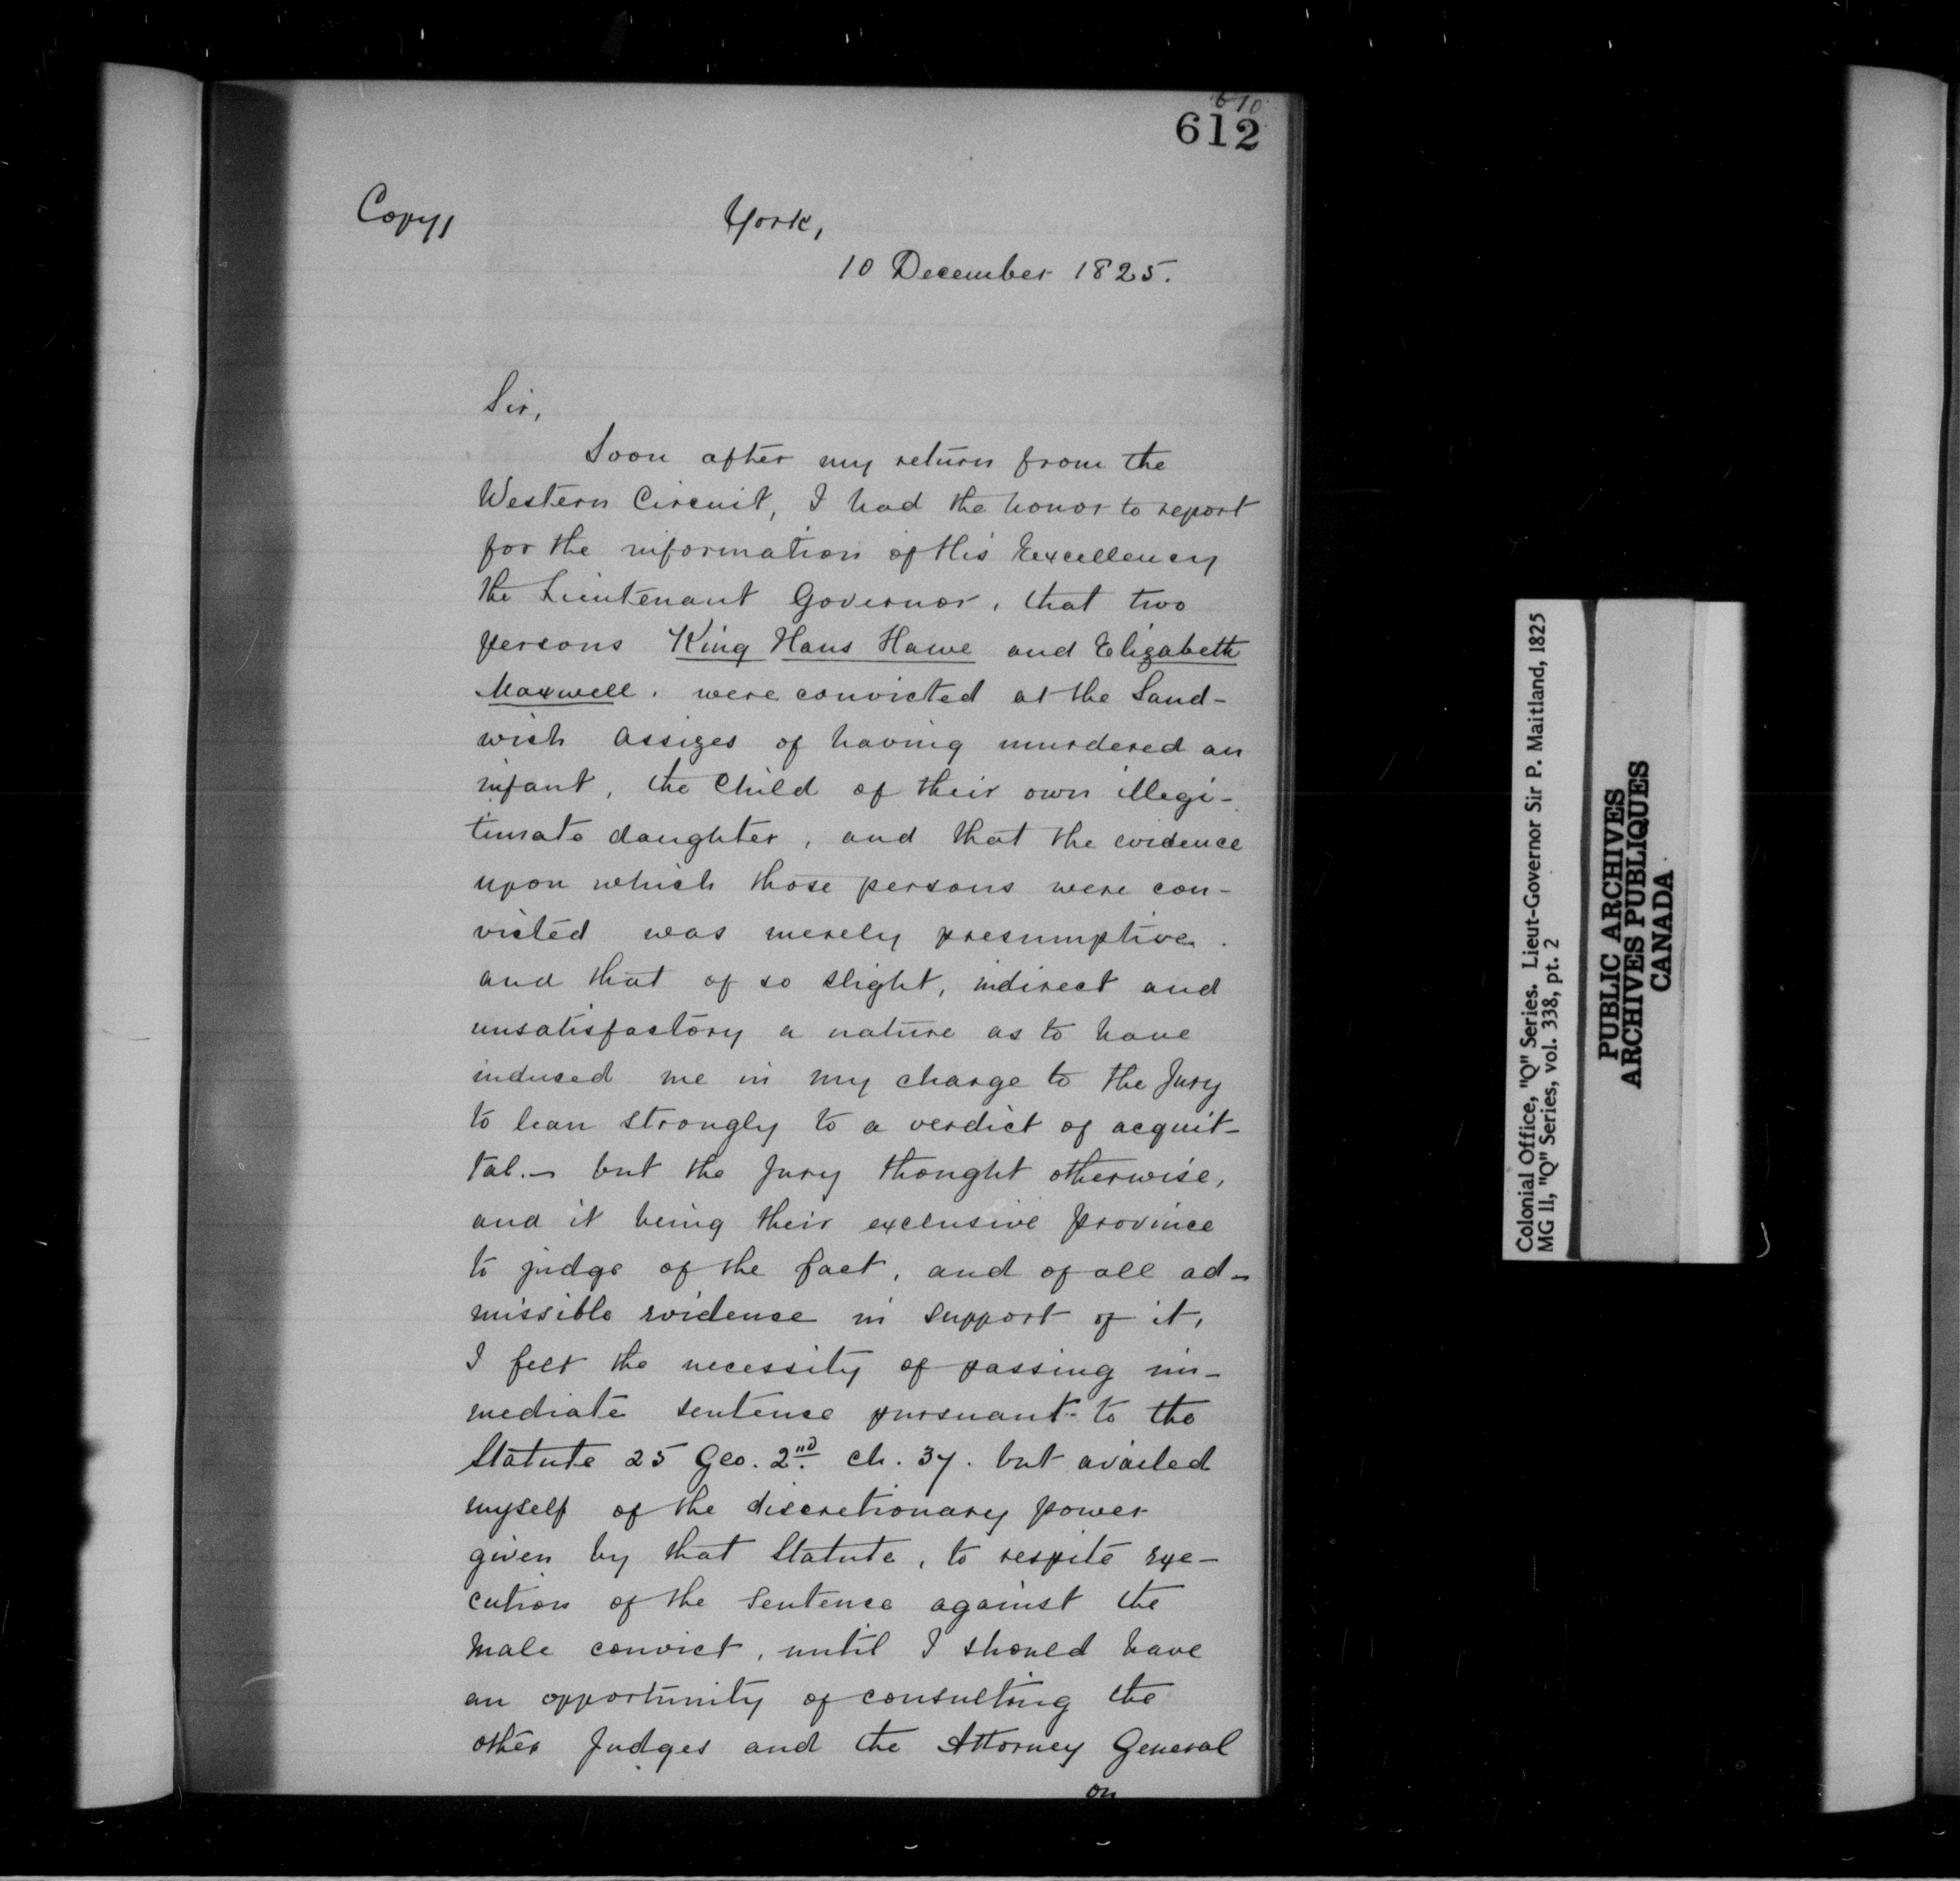 610
612
Copy,
York,
10 December 1825.
Sir,
Soon after my return from the
Western Circuit, I had the honor to report
for the information of His Excellency
the Lieutenant Governor, that two
persons King Hans Hawe and Elizabeth
Maxwell. were convicted at the Sand-
wich Assizes of having murdered an
infant, the Child of their own illegi-
timate daughter, and that the evidence
upon which those persons were con-
victed was merely presumptive.
and that of so slight, indirect and
unsatisfactory a nature as to have
induced me in my charge to the Jury
to lean strongly to a verdict of acquit-
tal.- but the Jury thought otherwise,
and it being their exclusive province
to judge of the fact, and of all ad-
missible evidence in support of it,
I felt the necessity of passing im-
mediate sentence pursuant to the
Statute 25 Geo. 2nd ch. 37. but availed
myself of the discretionary power
given by that Statute, to respite exe-
cution of the Sentence against the
Male convict, until I should have
an opportunity of consulting the
other Judges and the Attorney General
on
Colonial Office, "Q" Series. Lieut-Governor Sir P. Maitland, 1825
MG 11, "Q" Series, vol. 338, pt. 2
PUBLIC ARCHIVES
ARCHIVES PUBLIQUES
CANADA